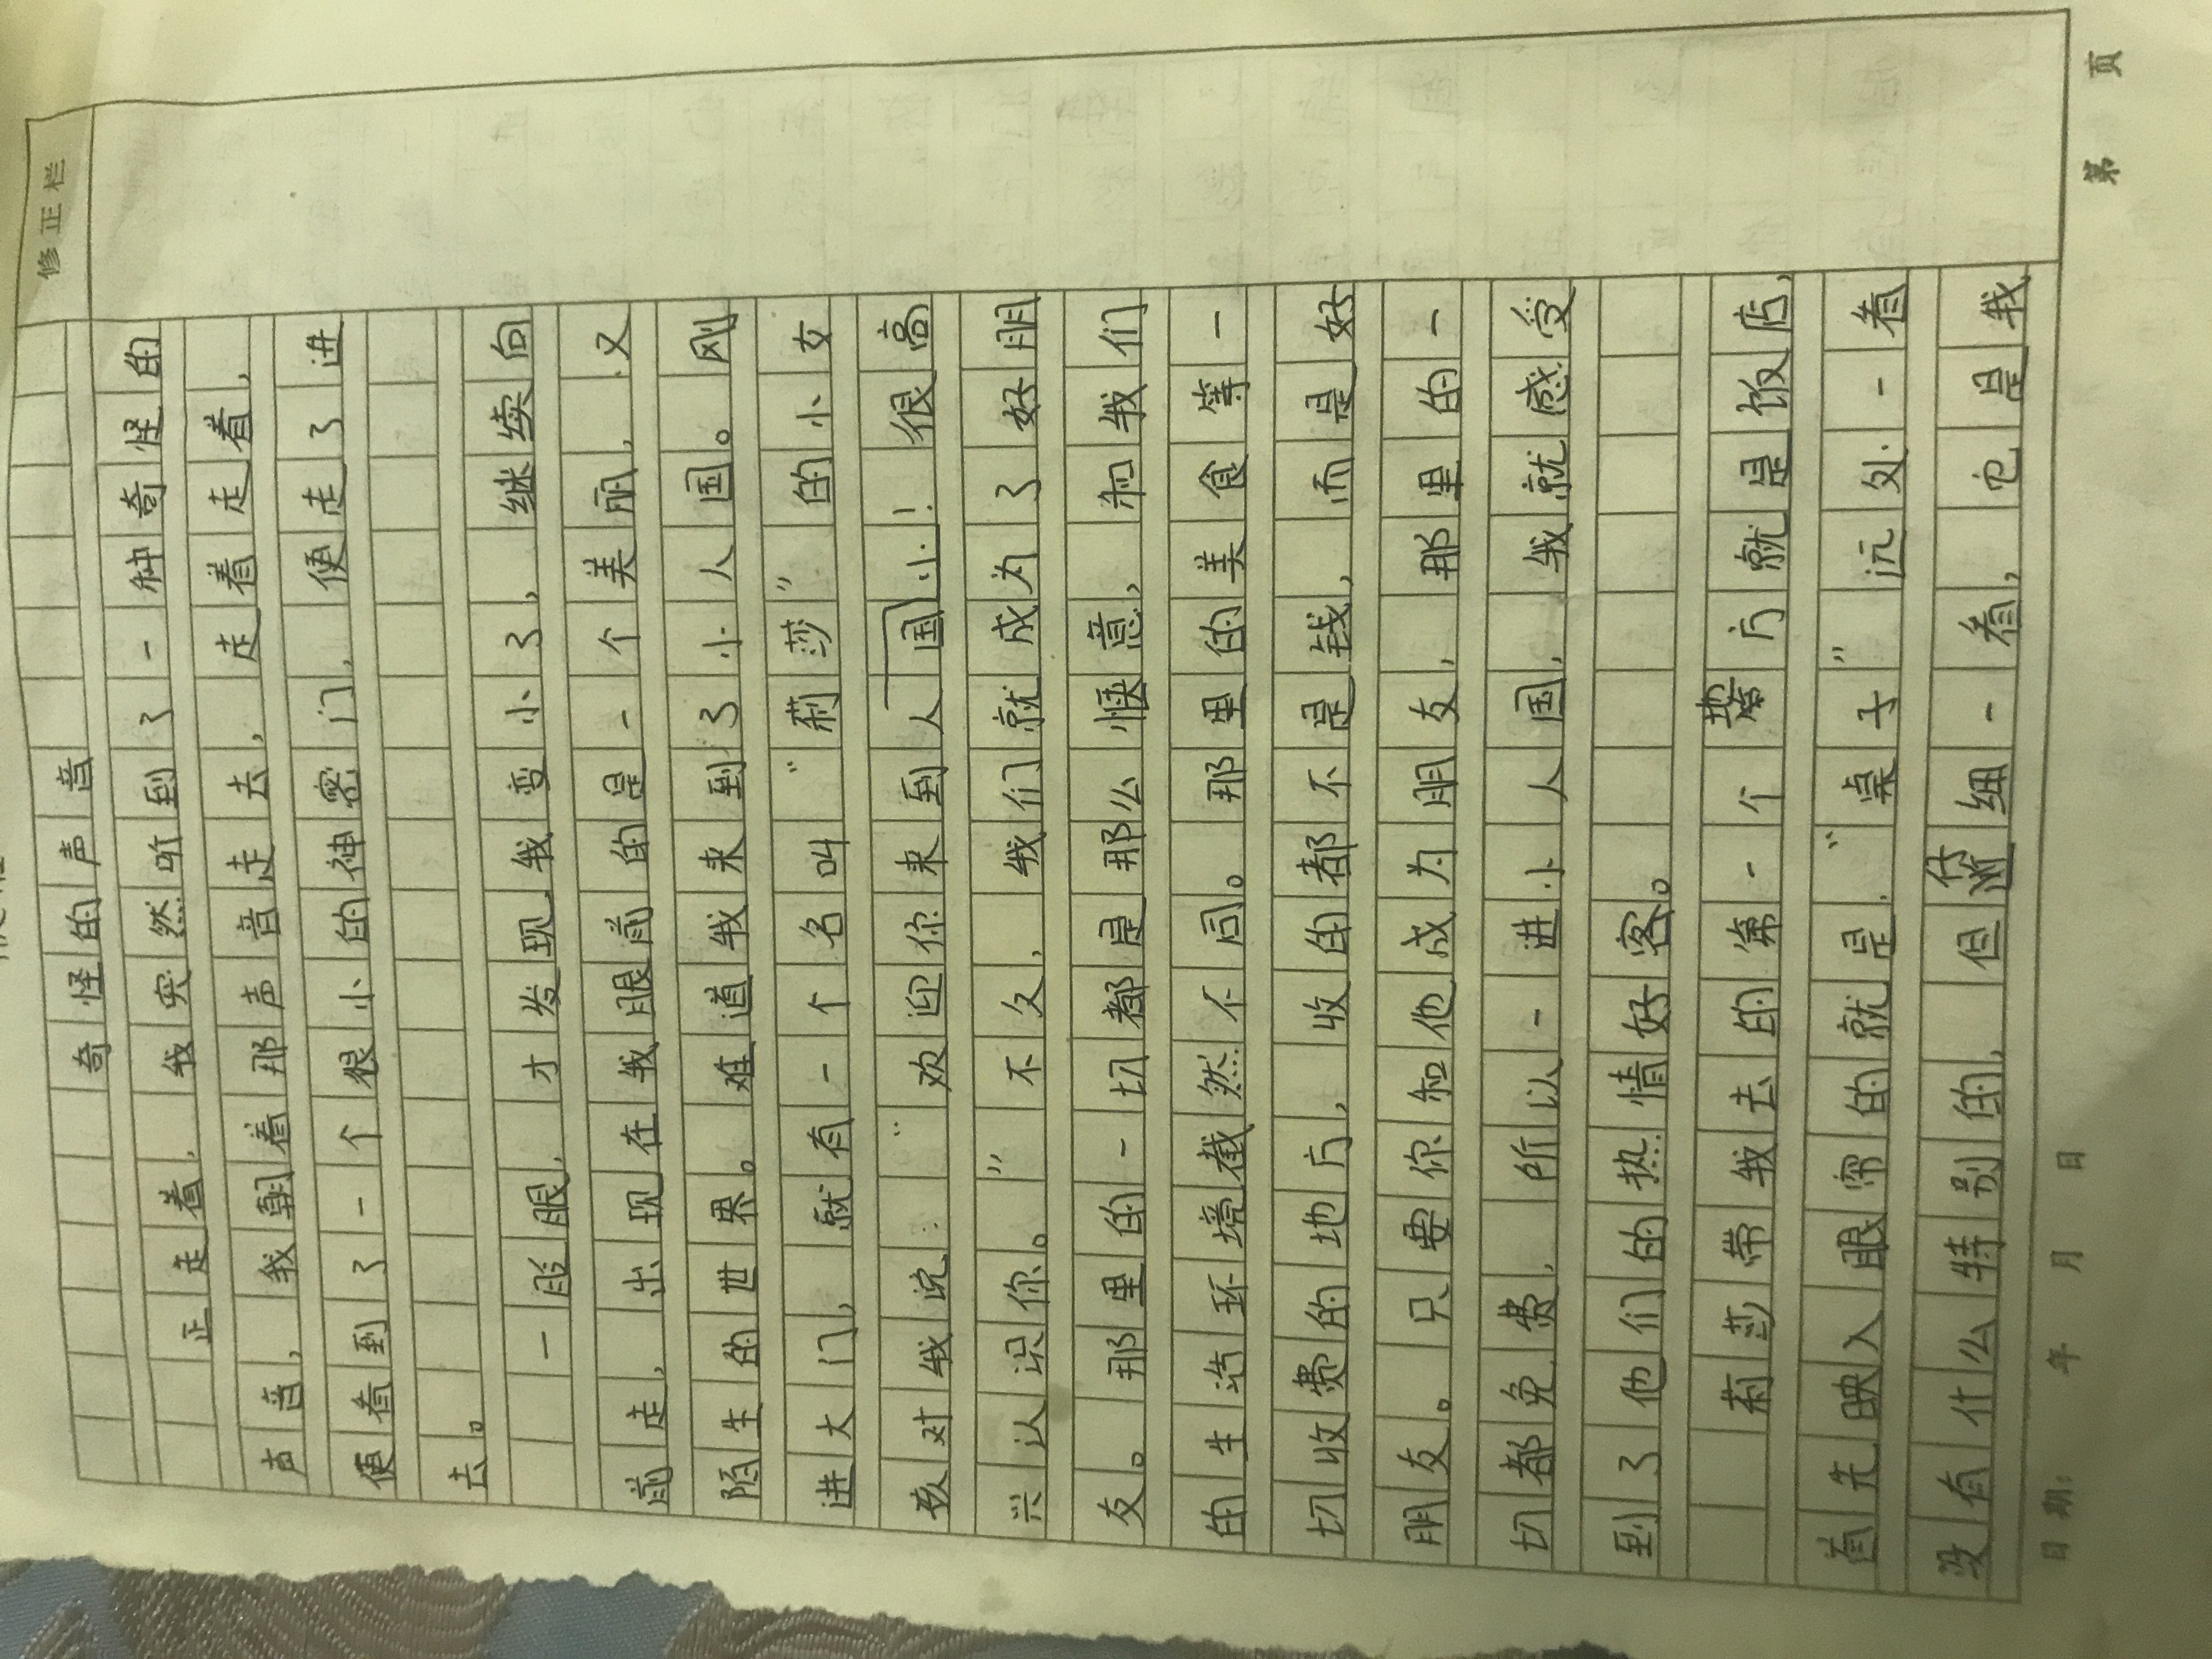 修正栏
奇怪的声音
正走着，我突然听到了一种奇怪的
声音，我朝着那声音走去，走着走着，
便看到了一个很小的神密门，便走了进
去。
一眨眼，才发现我变小了，继续向
前走，出现在我眼前的是一个美丽，又
陌生的世界。难道我来到了小人国。刚
进大门，就有一个名叫“莉莎”的小女
孩对我说：“欢迎你来到人国小！很高
兴认识你。”不久，我们就成为了好朋
友。那里的一切都是那么惬意，和我们
的生活环境截然不同。那里的美食等一
切收费的地方，收的都不是钱，而是好
朋友。只要你和他成为朋友，那里的一
切都免费，所以一进小人国，我就感受
到了他们的热情好客。
莉莎带我去的第一个地方就是饭店，
首先映入眼帘的就是“桌子”远处一看
没有什么特别的，但仔细一看，它是我
日期： 年 月 日 第 页